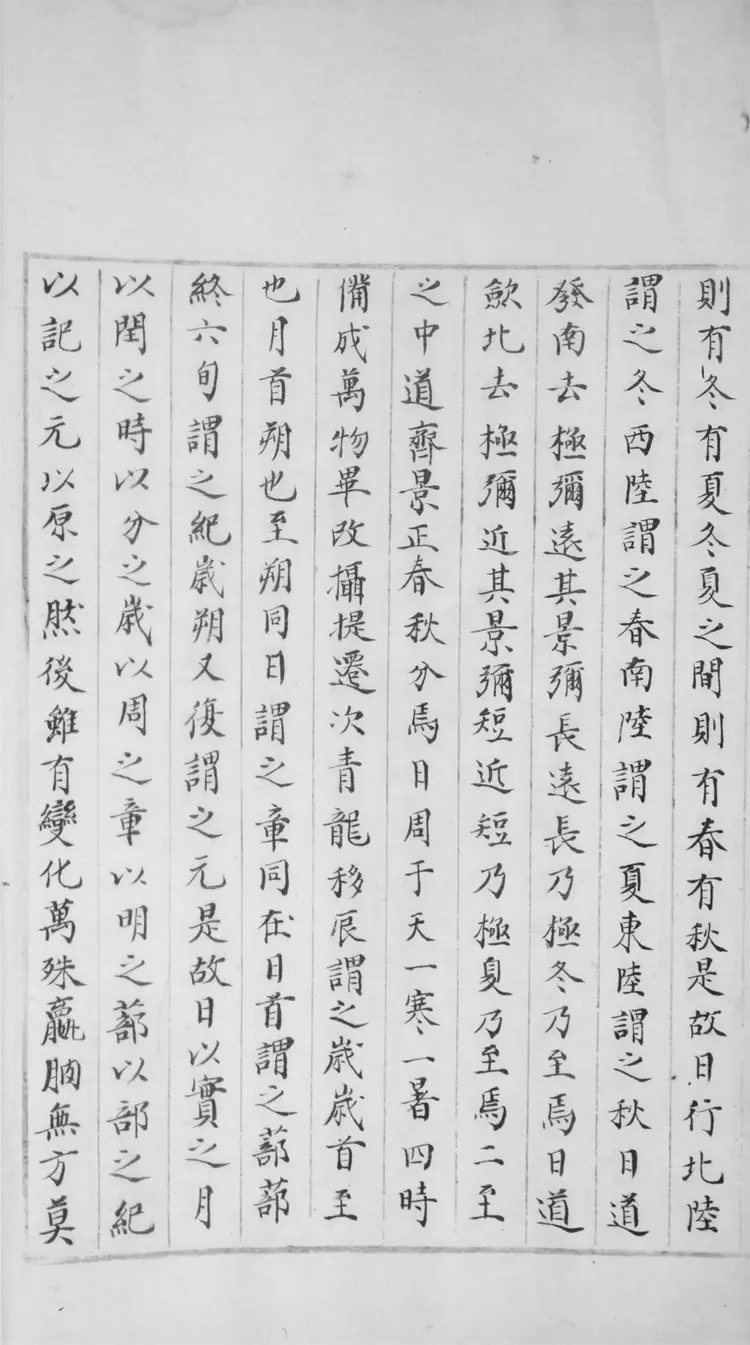 則有冬有夏冬夏之間則有春有秋是故日行北陸
謂之冬西陸謂之春南陸謂之夏東陸謂之秋日道
發南去極彌遠其景彌長遠長乃極冬乃至焉日道
歛北去極彌近其景彌短近短乃極夏乃至焉二至
之中道齊景正春秋分焉日周于天一寒一暑四時
備成萬物畢改攝提遷次青龍移辰謂之歲歲首至
也月首朔也至朔同日謂之章同在日首謂之蔀蔀
終六旬謂之紀歲朔又復謂之元是故日以實之月
以閏之時以分之歲以周之章以明之蔀以部之紀
以記之元以原之然後雖有變化萬殊贏朒無方莫